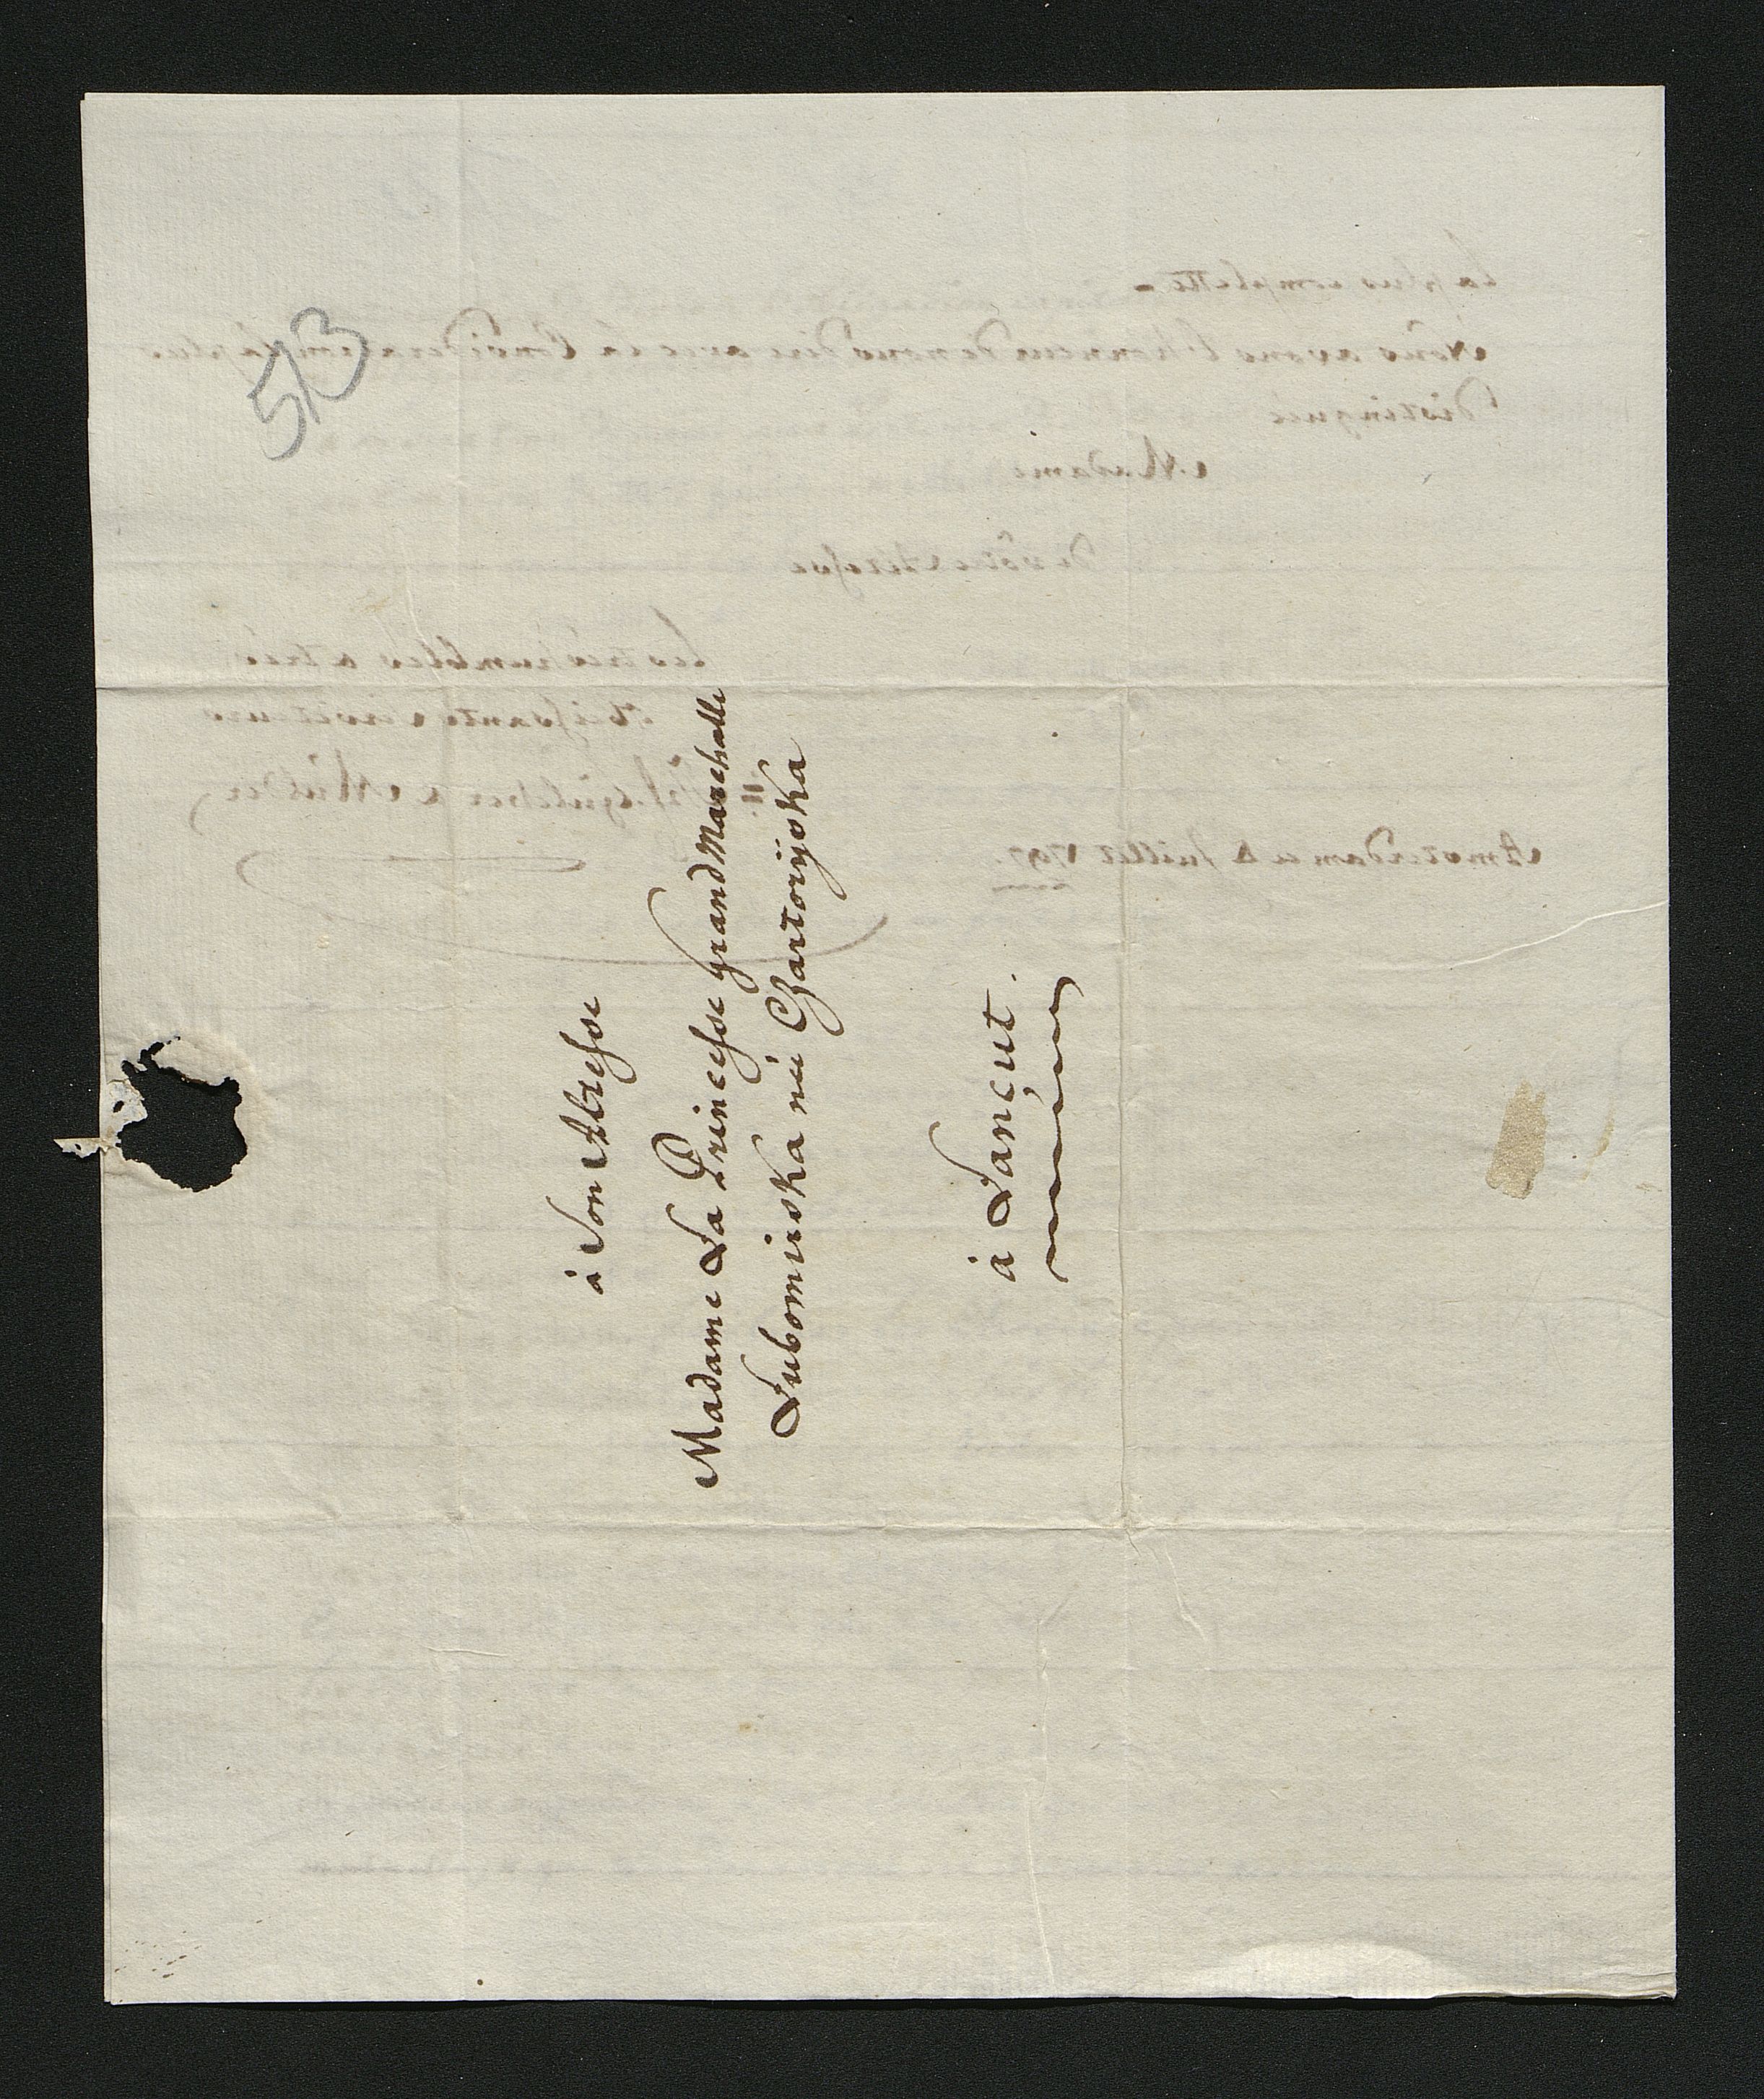 513
à Son Altesse
Madame La Princesse Grand Marechalle
Lubomirska née Czartoryska
à Lancut.
la plus complette
Nous avons l'honneur de nous dire avec la Consideration la plus
distinguée
Madame
de vôtre Altesse
Les très humbles & très
obeissants serviteurs
& Mulder
Amsterdam Juillet